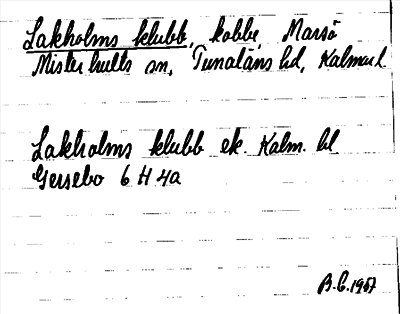 Lakholms klubb, kobbe, Marsö
Misterhults sn, Tunaläns hd, Kalmar l.
Lakholms klubb ek. Kalm. bl
Gersebo 6 H 4a
B.C. 1967